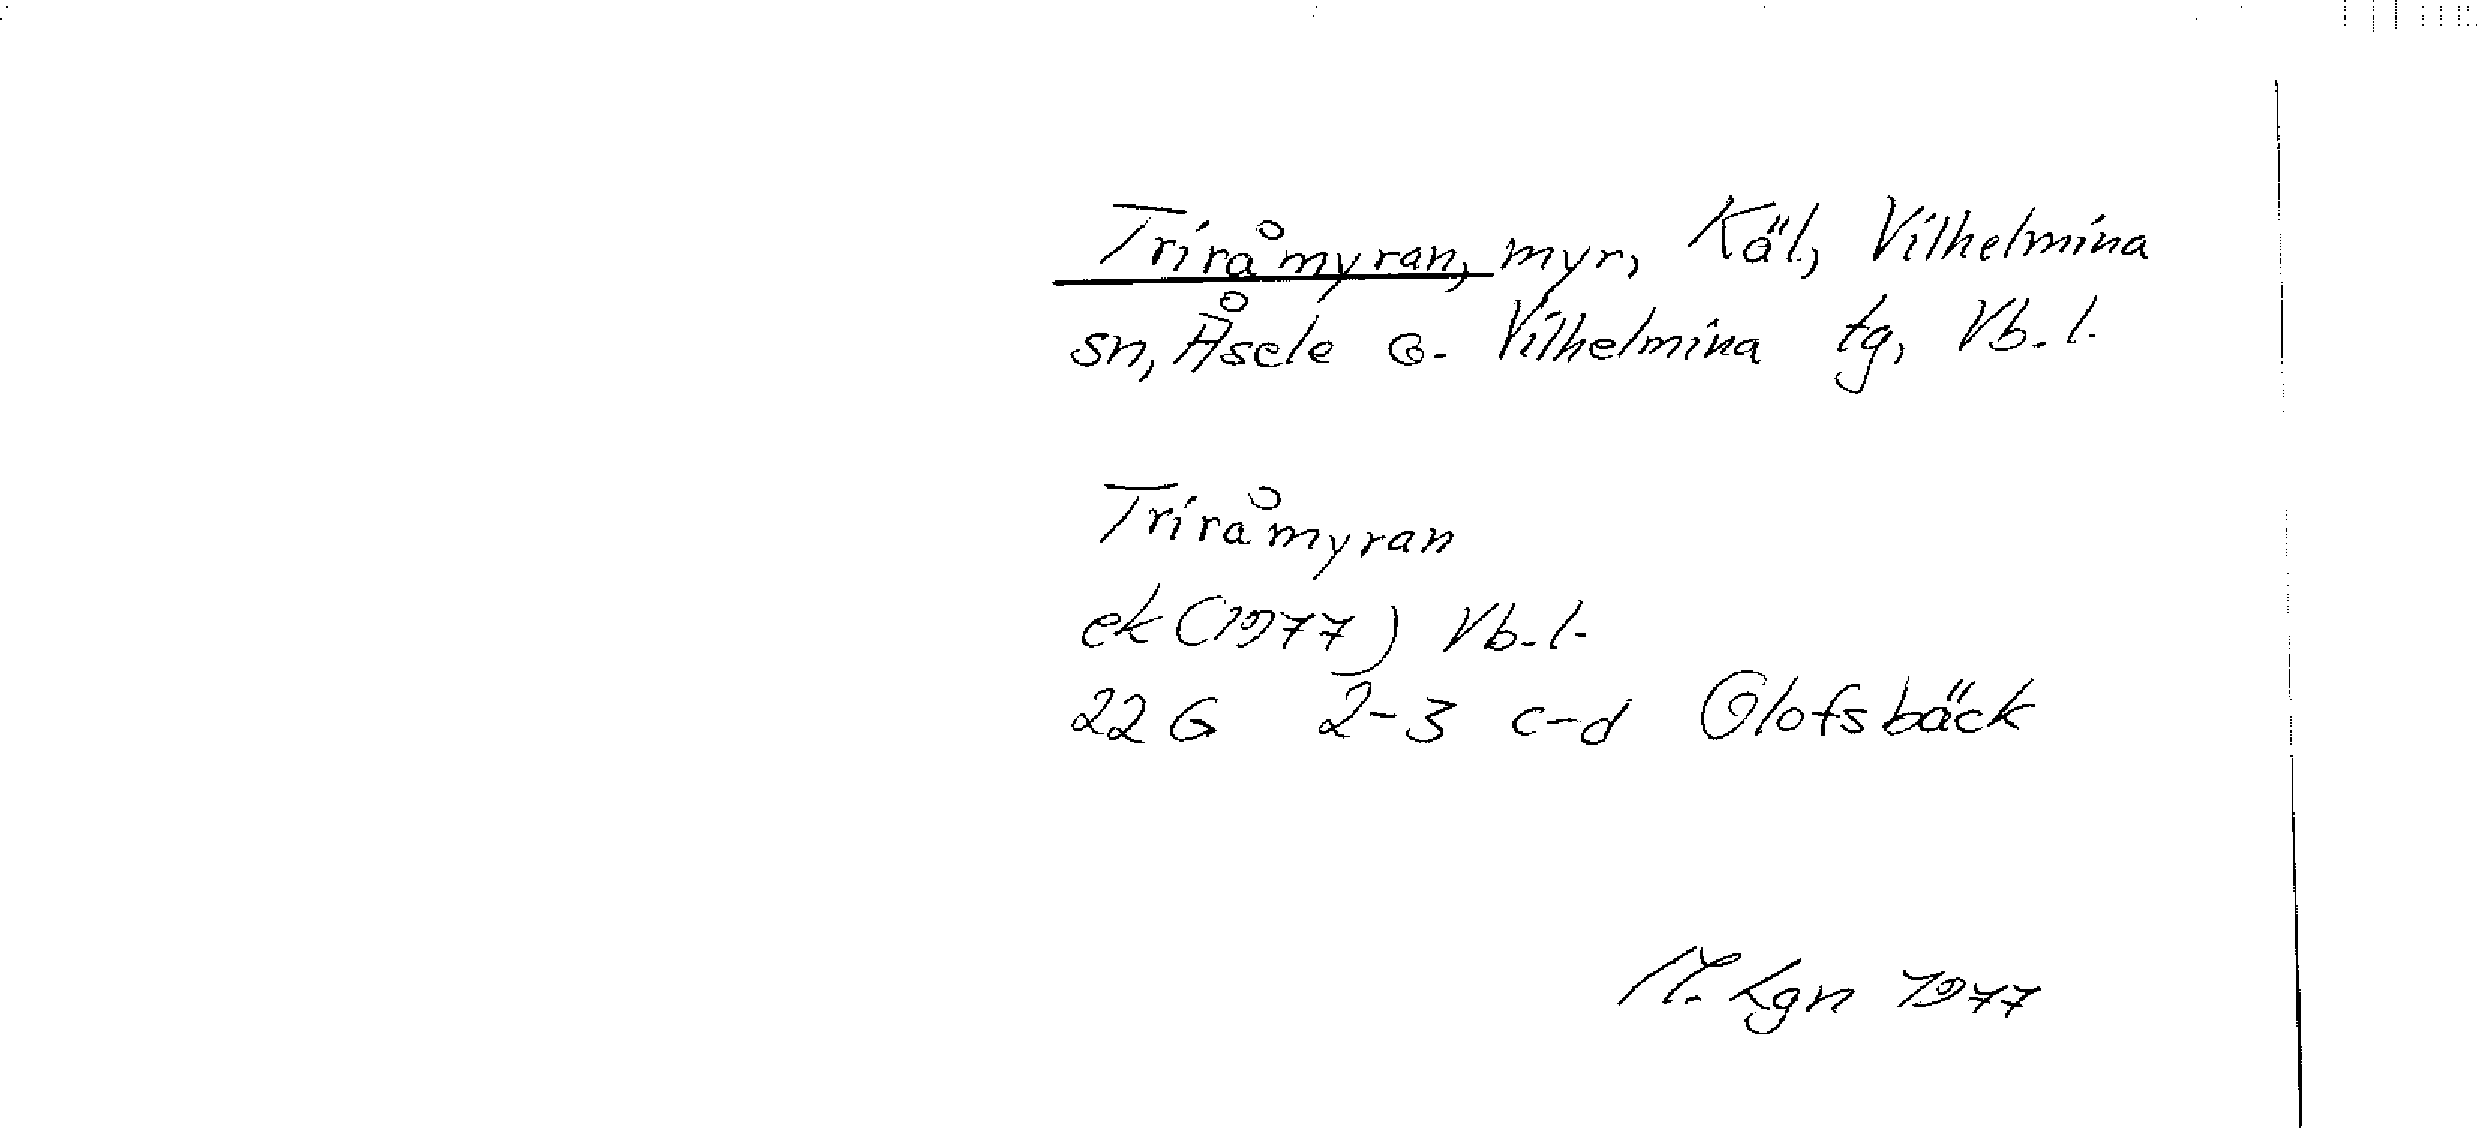 Triråmyran, myr, Käl, Vilhelmina
sn, Åsele o. Vilhelmina tg, Vb. l.
Triråmyran
ek (1977) Vb. l.
22 G 2-3 c-d Olofsbäck
M. Lgn 1977